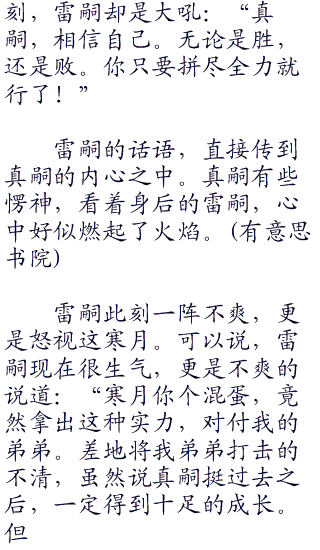 刻，雷嗣却是大吼：“真
嗣，相信自己。无论是胜，
还是败。你只要拼尽全力就
行了！”
雷嗣的话语，直接传到
真嗣的内心之中。真嗣有些
愣神，看着身后的雷嗣，心
中好似燃起了火焰。(有意思
书院)
雷嗣此刻一阵不爽，更
是怒视这寒月。可以说，雷
嗣现在很生气，更是不爽的
说道：“寒月你个混蛋，竟
然拿出这种实力，对付我的
弟弟。差地将我弟弟打击的
不清，虽然说真嗣挺过去之
后，一定得到十足的成长。
但